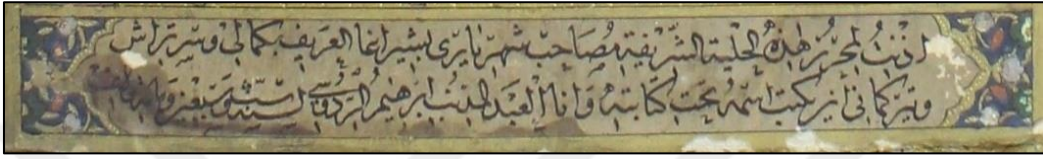 اذنت لمحرر هذه الحلية الشريفة مصاحب شهرياري بشير اغا العريف بكمانى وسرتراش
وتيركمانى ان يكتب اسمه تحت كتابته وانا العبد المذنب ابرهيم الردوسى سنة وسبعين